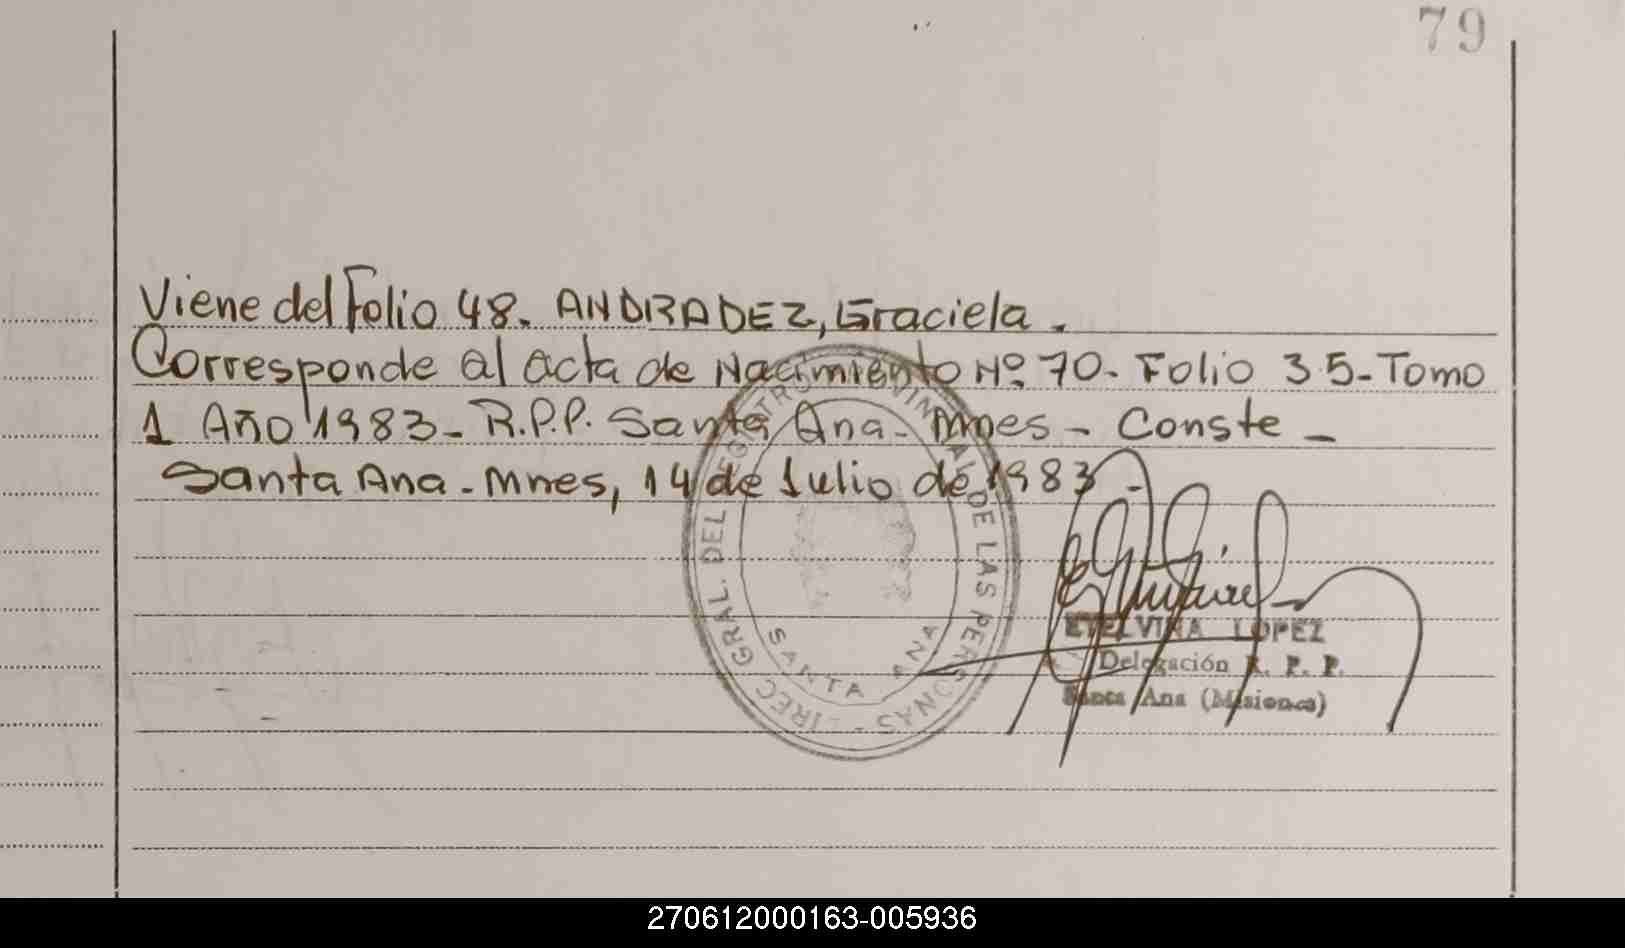 79
Viene del Folio 48. ANDRADEZ, Graciela.
Corresponde al acta de Nacimiento Nº 70. Folio 35-Tomo
1 Año 1983- R.P.P. Santa Ana- Mnes - Conste -
Santa Ana - Mnes, 14 de Julio de 1983 -
DIREC. GRAL. DEL REGISTRO PROVINCIAL DE LAS PERSONAS -
SANTA ANA
ETELVINA LOPEZ
Delegación R. P. P.
Santa Ana (Misiones)
270612000163-005936